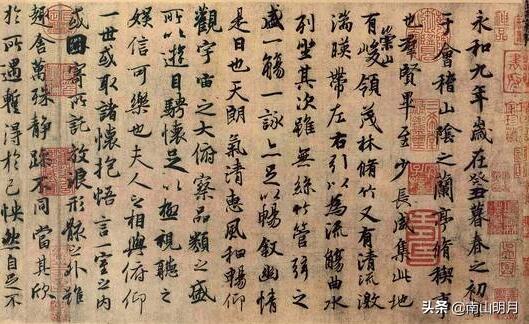 永和九年歲在癸丑暮春之初會
于會稽山陰之蘭亭脩稧事
也羣賢畢至少長咸集此地
有崇山峻領茂林脩竹又有清流激
湍暎帶左右引以為流觴曲水
列坐其次雖無絲竹管弦之
盛一觴一詠亦足以暢敘幽情
是日也天朗氣清惠風和暢仰
觀宇宙之大俯察品類之盛
所以遊目騁懷足以極視聽之
娛信可樂也夫人之相與俯仰
一世或取諸懷抱悟言一室之內
或因寄所託放浪形骸之外雖
趣舍萬殊靜躁不同當其欣
於所遇蹔得於己怏然自足不
头条 @南山明月